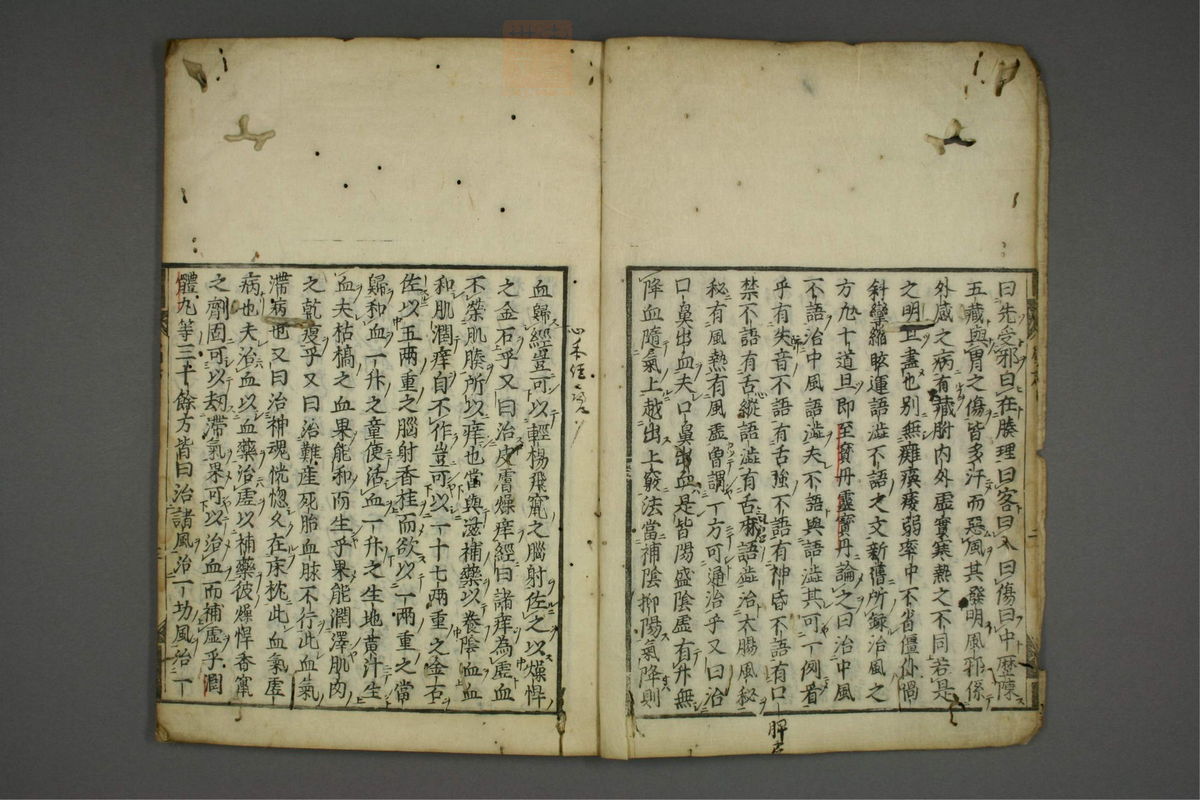 曰先受邪曰在腠理曰客曰入曰傷曰中歷陳
五藏與胃之傷皆多汗而惡風其發明風邪係
外感之病有藏腑內外虛實寒熱之不同若是
之明且盡也別無癱瘓痿弱卒中不省僵仆喎
斜攣縮眩運語澁不語之文新舊所錄治風之
方凢十道且即至寶丹靈寶丹論之曰治中風
不語治中風語澁夫不語與語澁其可一例看
乎有失音不語有舌強不語有神昏不語有口
禁不語有舌縱語澁有舌麻語澁治大腸風秘
秘有風熱有風虛曾謂一方可通治乎又曰治
口鼻出血夫口鼻出血是皆陽盛陰虛有升無
降血隨氣上越出上竅法當補陰抑陽氣降則
血歸經豈可以輕楊飛竄之腦射佐之以燥悍
之金石乎又曰治皮膚燥痒經曰諸痒為虛血
不榮肌腠所以痒也當與滋補藥以養陰血血
和肌潤痒自不作豈可以一十七兩重之金石
佐以五兩重之腦射香桂而欲以一兩重之當
歸和血一升之童便活血一升之生地黃汁生
血夫枯槁之血果能和而生乎果能潤澤肌肉
之乾瘦乎又曰治難產死胎血脉不行此血氣
滯病也又曰治神魂恍惚久在床枕此血氣虛
病也夫治血以血藥治虛以補藥彼燥悍香竄
之劑固可以刼滯氣果可以治血而補虛乎潤
體丸等三十餘方皆曰治諸風治一切風治一